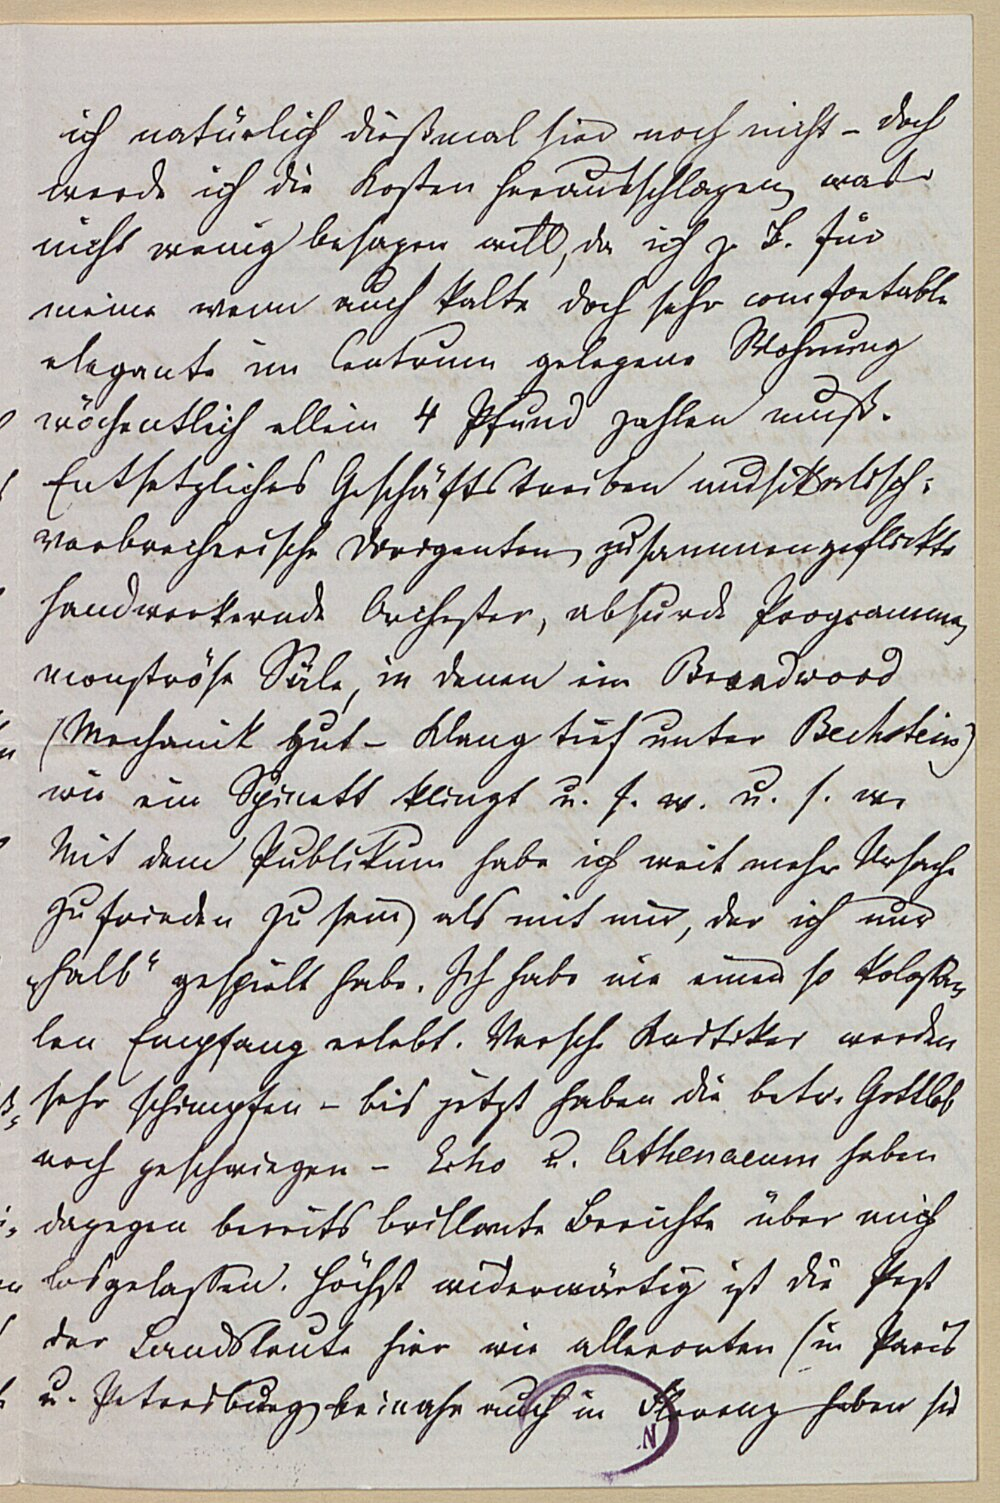 ich natürlich dießmal hier noch nicht – doch
werde ich die Kosten herausschlagen, was
nicht wenig besagen will, da ich z. B. für
meine wenn auch kalte doch sehr comfortable
elegante im Centrum gelegene Wohnung
wöchentlich allein 4 Pfund zahlen muß.
Entsetzliches Geschäftstreiben musikalisch-
verbrecherische Dirigenten, zusammengeflickte
handwerkernde Orchester, absurde Programme,
monströse Säle, in denen ein Broadwood
(Mechanik gut – Klang tief unter Bechstein)
wie ein Spinett klingt u. s. w. u. s. w.
Mit dem Publikum habe ich weit mehr Ursache
zufrieden zu sein, als mit mir, der ich nur
„halb“ gespielt habe. Ich habe nie einen so kolossa-
len Empfang erlebt. Versch. Kritiker werden
sehr schimpfen – bis jetzt haben die betr. Gottlob
noch geschwiegen – Echo u. Athenaeum haben
dagegen bereits brillante Berichte über mich
losgelassen. Höchst widerwärtig ist die Pest
der Landsleute hier wie allerorten (in Paris
u. Petersburg, beinahe auch in Florenz haben sie
N.